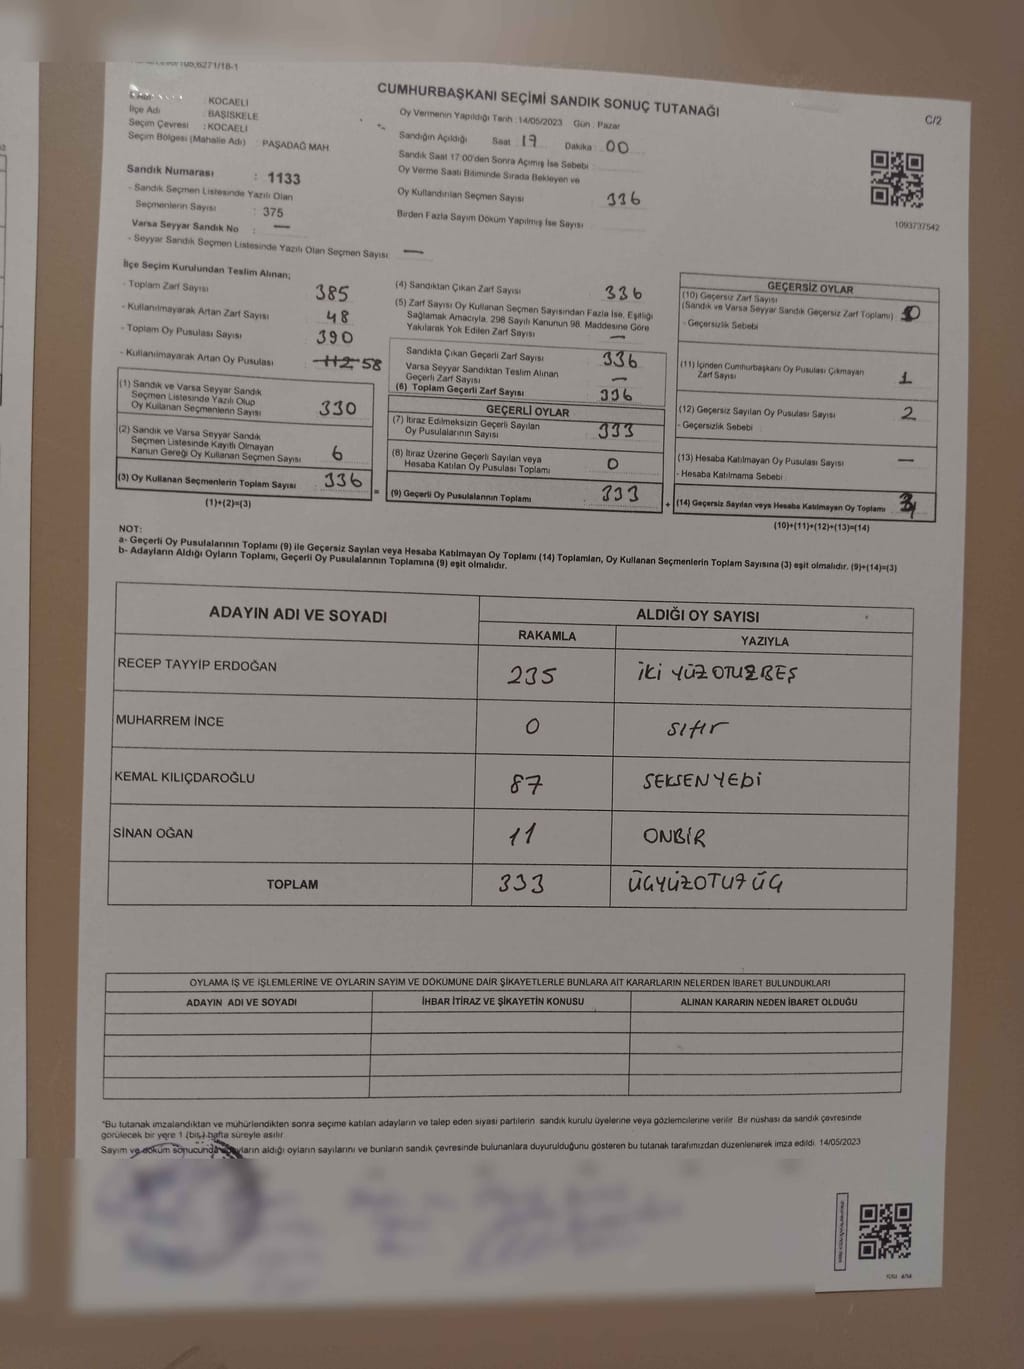 CUMHURBAŞKANI SEÇİMİ SANDIK SONUÇ TUTANAĞI
C/2
: KOCAELİ
İlçe Adı : BAŞİSKELE
Seçim Çevresi : KOCAELİ
Seçim Bölgesi (Mahalle Adı) : PAŞADAĞ MAH.
Oy Vermenin Yapıldığı Tarih : 14/05/2023 Gün : Pazar
Sandığın Açıldığı Saat 17 Dakika : 00
Sandık Saat 17:00'den Sonra Açılmış İse Sebebi :
Oy Verme Saati Bitiminde Sırada Bekleyen ve
Oy Kullandırılan Seçmen Sayısı 336
Birden Fazla Sayım Döküm Yapılmış İse Sayısı
1093737542
Sandık Numarası : 1133
- Sandık Seçmen Listesinde Yazılı Olan
Seçmenlerin Sayısı : 375
Varsa Seyyar Sandık No : —
- Seyyar Sandık Seçmen Listesinde Yazılı Olan Seçmen Sayısı : —
İlçe Seçim Kurulundan Teslim Alınan;
- Toplam Zarf Sayısı 385
- Kullanılmayarak Artan Zarf Sayısı 48
- Toplam Oy Pusulası Sayısı 390
- Kullanılmayarak Artan Oy Pusulası 58
(1) Sandık ve Varsa Seyyar Sandık
Seçmen Listesinde Yazılı Olup
Oy Kullanan Seçmenlerin Sayısı 330
(2) Sandık ve Varsa Seyyar Sandık
Seçmen Listesinde Kayıtlı Olmayan
Kanun Gereği Oy Kullanan Seçmen Sayısı 6
(3) Oy Kullanan Seçmenlerin Toplam Sayısı 336
(1)+(2)=(3)
=
(4) Sandıktan Çıkan Zarf Sayısı 336
(5) Zarf Sayısı Oy Kullanan Seçmen Sayısından Fazla İse, Eşitliği
Sağlamak Amacıyla, 298 Sayılı Kanunun 98. Maddesine Göre
Yakılarak Yok Edilen Zarf Sayısı —
Sandıkta Çıkan Geçerli Zarf Sayısı 336
Varsa Seyyar Sandıktan Teslim Alınan
Geçerli Zarf Sayısı —
(6) Toplam Geçerli Zarf Sayısı 336
GEÇERLİ OYLAR
(7) İtiraz Edilmeksizin Geçerli Sayılan
Oy Pusulalarının Sayısı 333
(8) İtiraz Üzerine Geçerli Sayılan veya
Hesaba Katılan Oy Pusulası Toplamı 0
(9) Geçerli Oy Pusulalarının Toplamı 333
+
GEÇERSİZ OYLAR
(10) Geçersiz Zarf Sayısı
(Sandık ve Varsa Seyyar Sandık Geçersiz Zarf Toplamı) 0
- Geçersizlik Sebebi
(11) İçinden Cumhurbaşkanı Oy Pusulası Çıkmayan
Zarf Sayısı 1
(12) Geçersiz Sayılan Oy Pusulası Sayısı 2
- Geçersizlik Sebebi :
(13) Hesaba Katılmayan Oy Pusulası Sayısı —
- Hesaba Katılmama Sebebi :
(14) Geçersiz Sayılan veya Hesaba Katılmayan Oy Toplamı 3
(10)+(11)+(12)+(13)=(14)
NOT:
a- Geçerli Oy Pusulalarının Toplamı (9) ile Geçersiz Sayılan veya Hesaba Katılmayan Oy Toplamı (14) Toplamları, Oy Kullanan Seçmenlerin Toplam Sayısına (3) eşit olmalıdır. (9)+(14)=(3)
b- Adayların Aldığı Oyların Toplamı, Geçerli Oy Pusulalarının Toplamına (9) eşit olmalıdır.
ADAYIN ADI VE SOYADI
ALDIĞI OY SAYISI
RAKAMLA YAZIYLA
RECEP TAYYİP ERDOĞAN 235 İKİ YÜZ OTUZ BEŞ
MUHARREM İNCE 0 sıfır
KEMAL KILIÇDAROĞLU 87 SEKSENYEDİ
SİNAN OĞAN 11 ONBİR
TOPLAM 333 ÜÇYÜZOTUZ ÜÇ
OYLAMA İŞ VE İŞLEMLERİNE VE OYLARIN SAYIM VE DÖKÜMÜNE DAİR ŞİKAYETLERLE BUNLARA AİT KARARLARIN NELERDEN İBARET BULUNDUKLARI
ADAYIN ADI VE SOYADI İHBAR İTİRAZ VE ŞİKAYETİN KONUSU ALINAN KARARIN NEDEN İBARET OLDUĞU
"Bu tutanak imzalandıktan ve mühürlendikten sonra seçime katılan adayların ve talep eden siyasi partilerin sandık kurulu üyelerine veya gözlemcilerine verilir. Bir nüshası da sandık çevresinde
görülecek bir yere 1 (bir) hafta süreyle asılır.
Sayım ve döküm sonucunda adayların aldığı oyların sayılarını ve bunların sandık çevresinde bulunanlara duyurulduğunu gösteren bu tutanak tarafımızdan düzenlenerek imza edildi. 14/05/2023